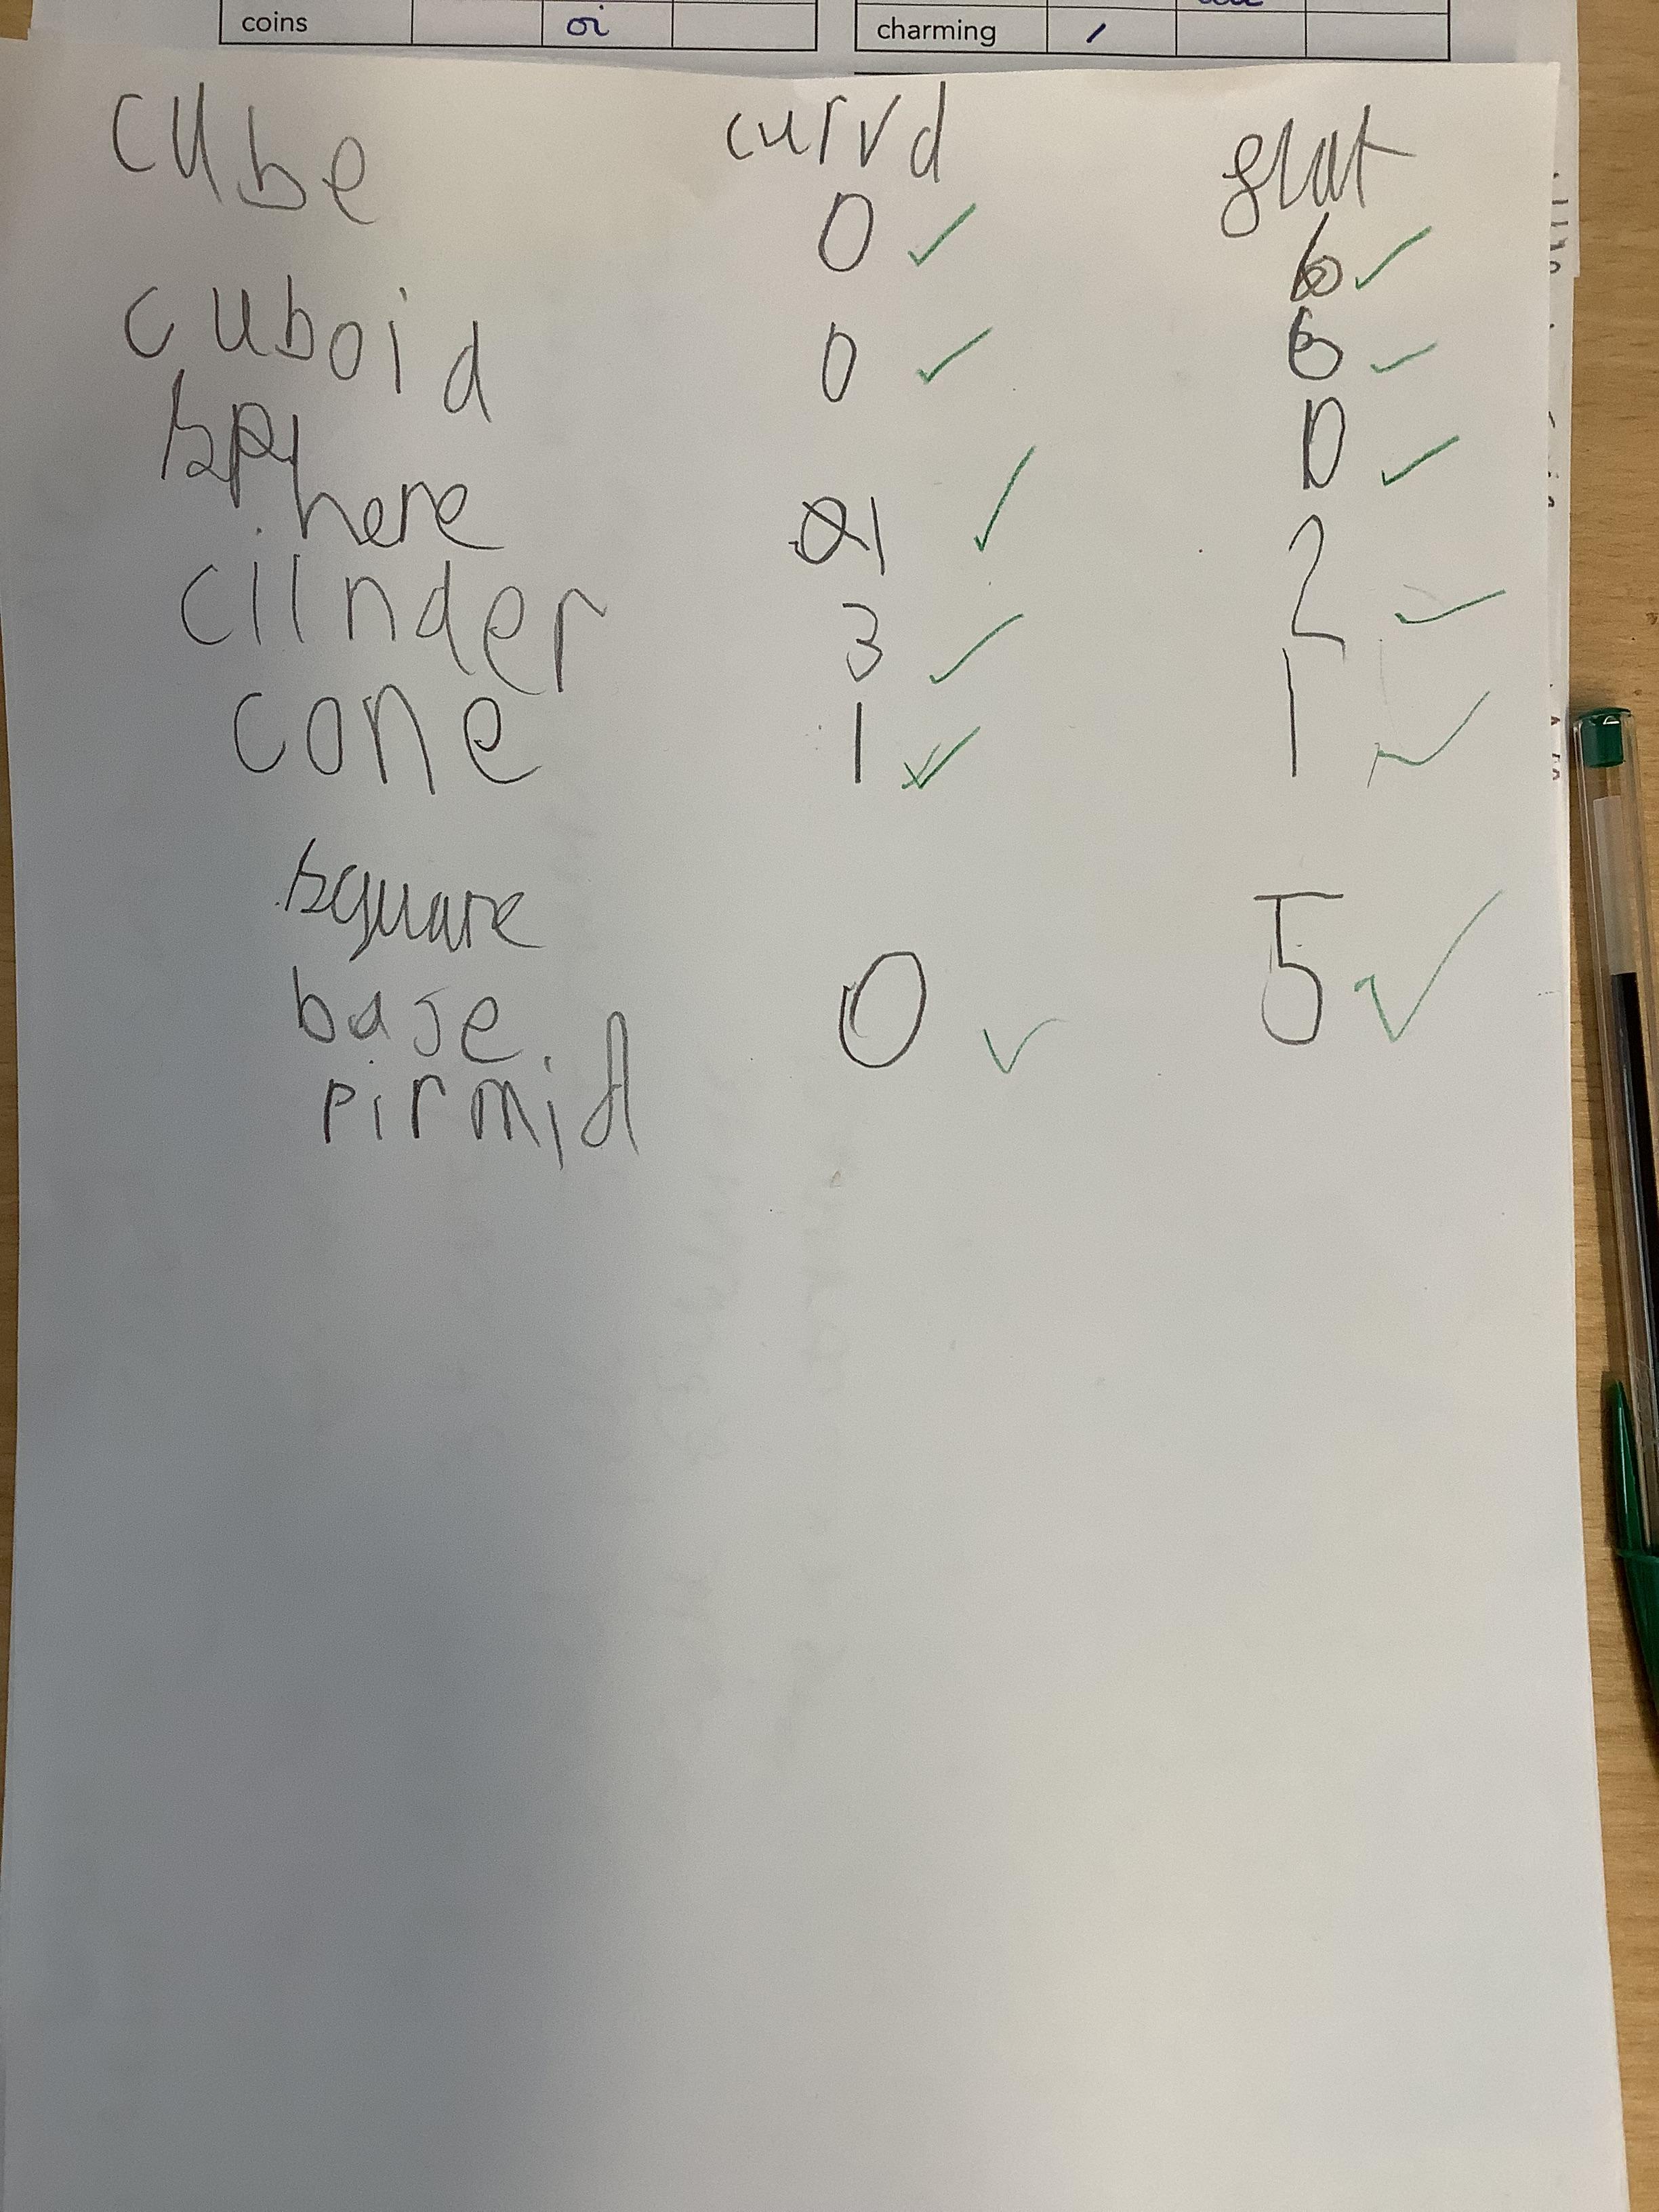 coins oi
charming
cube curvd flat
0 6
cuboid 0 6
sp
here 1 0
cilnder 3 2
cone 1 1
square
base 0 5
pirmid